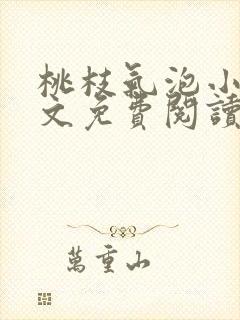 桃枝氣泡小
文免費閱讀
萬重山